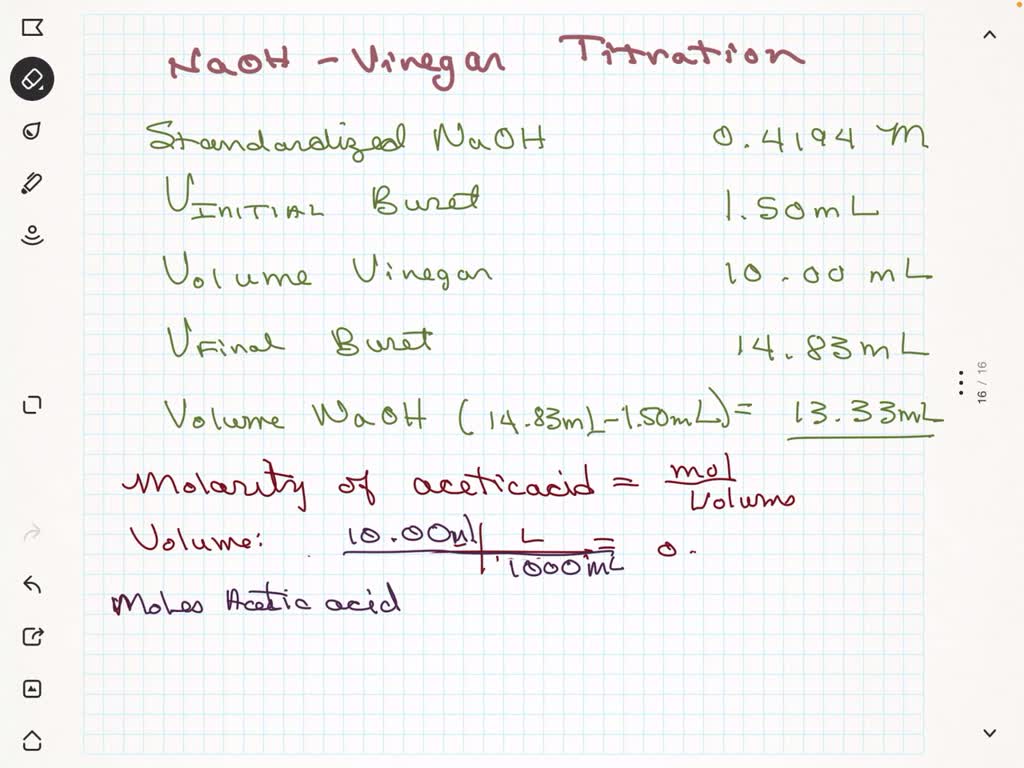 NaOH - Vinegar Titration
Standardized NaOH 0.4194 M
VINITIAL Buret 1.50mL
Volume Vinegar 10.00 mL
VFinal Buret 14.83mL
Volume NaOH (14.83mL-1.50mL)= 13.33mL
16 / 16
Molarity of acetic acid = mol
Volume
Volume: 10.00ml L = 0.
1000mL
Moles Acetic acid